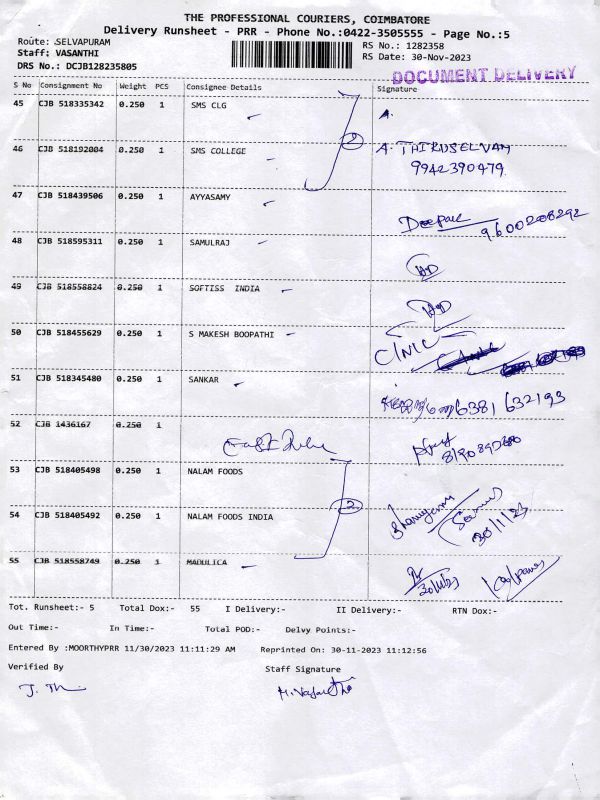 THE PROFESSIONAL COURIERS, COIMBATORE
Delivery Runsheet - PRR - Phone No.:0422-3505555 - Page No.:5
Route: SELVAPURAM
Staff: VASANTHI
DRS No.: DCJB128235805
RS No.: 1282358
RS Date: 30-Nov-2023
DOCUMENT DELIVERY
S No Consignment No Weight PCS Consignee Details Signature
45 CJB 518335342 0.250 1 SMS CLG A.
46 CJB 518192004 0.250 1 SMS COLLEGE A. THIRUSELVAM
9942390479
2
47 CJB 518439506 0.250 1 AYYASAMY Deepak 9600208292
48 CJB 518595311 0.250 1 SAMULRAJ
49 CJB 518558824 0.250 1 SOFTISS INDIA
50 CJB 518455629 0.250 1 S MAKESH BOOPATHI CINIC
51 CJB 518345480 0.250 1 SANKAR 6381 632193
52 CJB 1436167 0.250 1
53 CJB 518405498 0.250 1 NALAM FOODS
54 CJB 518405492 0.250 1 NALAM FOODS INDIA 30/11/23
2
55 CJB 518558749 0.250 1 MADULICA 30/11/23
Tot. Runsheet:- 5 Total Dox:- 55 I Delivery:- II Delivery:- RTN Dox:-
Out Time:- In Time:- Total POD:- Delvy Points:-
Entered By :MOORTHYPRR 11/30/2023 11:11:29 AM Reprinted On: 30-11-2023 11:12:56
Verified By Staff Signature
M. Vasanthi